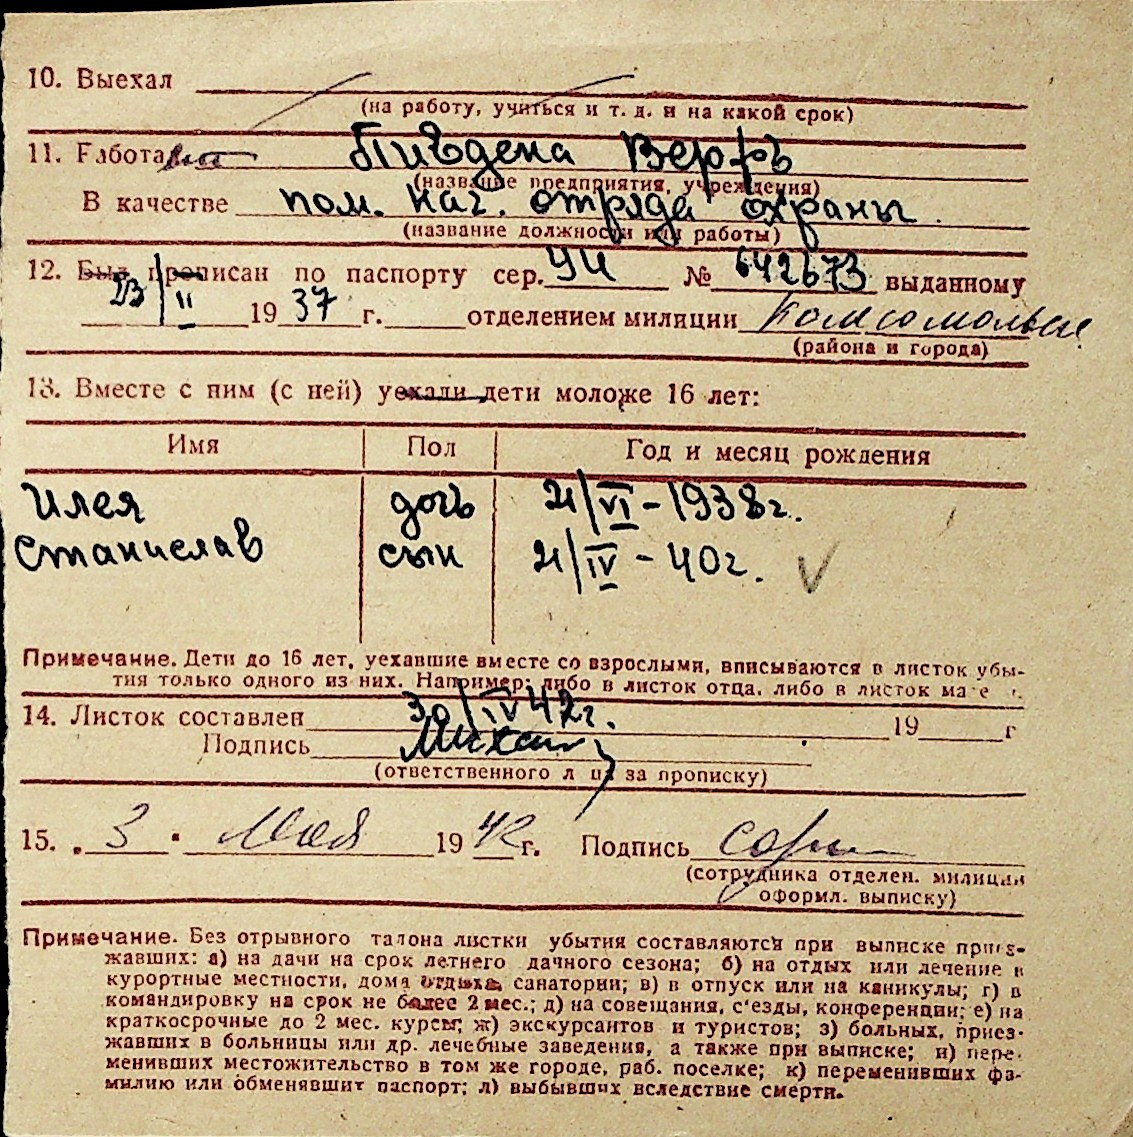 10. Выехал
(на работу, учиться и т. д. и на какой срок)
11. Работает Пивдена Верфь
(название предприятия, учреждения)
В качестве пом. нач. отряда охраны.
(название должности или работы)
12. Был прописан по паспорту сер. УЧ № 642673 выданному
23/II 1937 г. отделением милиции Комсомольск
(района и города)
13. Вместе с ним (с ней) уехали дети моложе 16 лет:
Имя Пол Год и месяц рождения
Илея дочь 21/VI-1938г.
Станислав сын 21/IV-40г. V
Примечание. Дети до 16 лет, уехавшие вместе со взрослыми, вписываются в листок убы-
тия только одного из них. Например: либо в листок отца, либо в листок
14. Листок составлен 30/IV 42г. 19 г
Подпись
(ответственного лица за прописку)
15. „3" Мая 1942 г. Подпись
(сотрудника отделен. милиции
оформл. выписку)
Примечание. Без отрывного талона листки убытия составляются при выписке приез-
жавших: а) на дачи на срок летнего дачного сезона; б) на отдых или лечение в
курортные местности, дома отдыха, санатории; в) в отпуск или на каникулы; г) в
командировку на срок не более 2 мес.; д) на совещания, с'езды, конференции; е) на
краткосрочные до 2 мес. курсы; ж) экскурсантов и туристов; з) больных, приез-
жавших в больницы или др. лечебные заведения, а также при выписке; и) пере-
менивших местожительство в том же городе, раб. поселке; к) переменивших фа-
милию или обменявших паспорт; л) выбывших вследствие смерти.